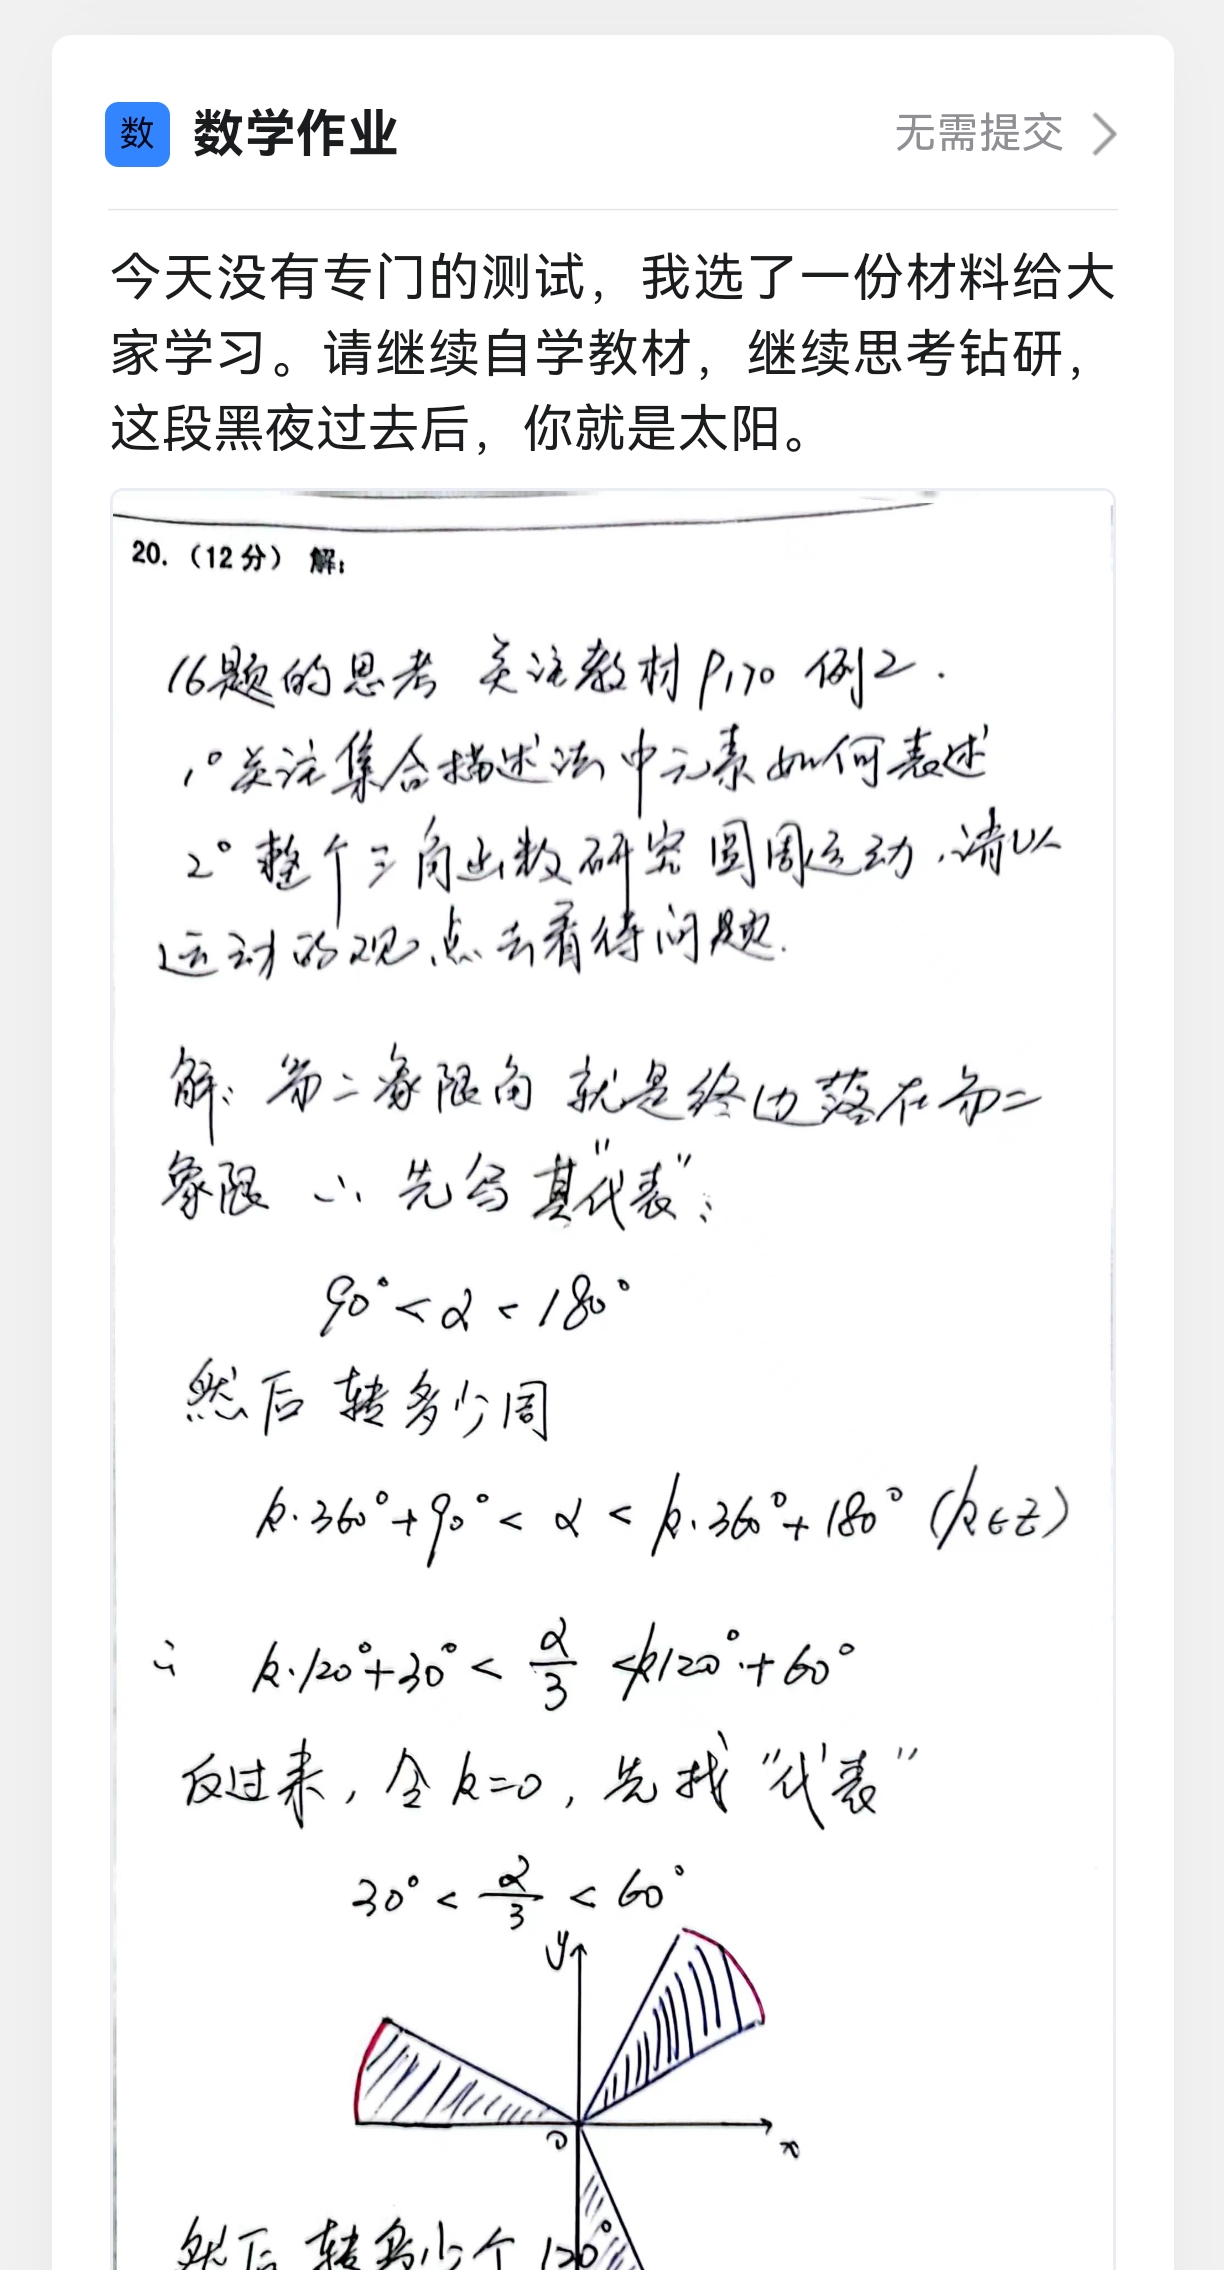 数 数学作业 无需提交
今天没有专门的测试，我选了一份材料给大
家学习。请继续自学教材，继续思考钻研，
这段黑夜过去后，你就是太阳。
20.（12分） 解：
16题的思考 关注教材P170 例2.
1°关注集合描述法中元素如何表述
2°整个三角函数研究圆周运动.请以
运动的观点去看待问题.
解：第二象限角 就是终边落在第二
象限 ∴ 先写其“代表”：
90°<α<180°
然后转多少周
k·360°+90°<α<k·360°+180°(k∈Z)
∴ k·120°+30°<α/3<k120°+60°
反过来，令k=0，先找“代表”
30°<α/3<60°
y
O
x
然后转多少个120°